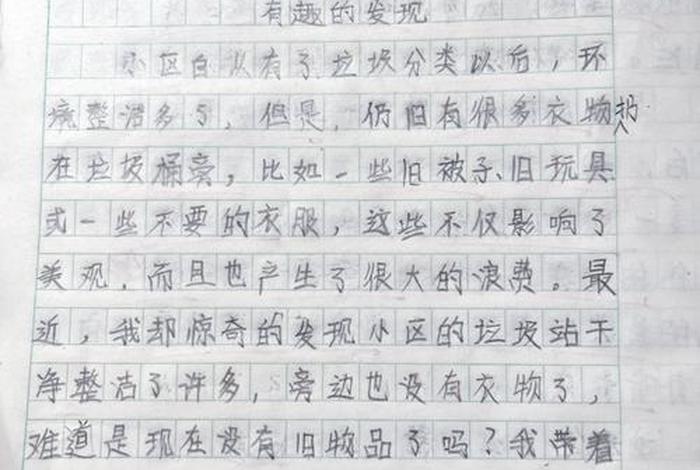 有趣的发现
小区自从有了垃圾分类以后，环
境整洁多了，但是，仍旧有很多衣物扔
在垃圾桶旁，比如一些旧被子、旧玩具
或一些不要的衣服，这些不仅影响了
美观，而且也产生了很大的浪费。最
近，我却惊奇的发现小区的垃圾站干
净整洁了许多，旁边也没有衣物了，
难道是现在没有旧物品了吗？我带着